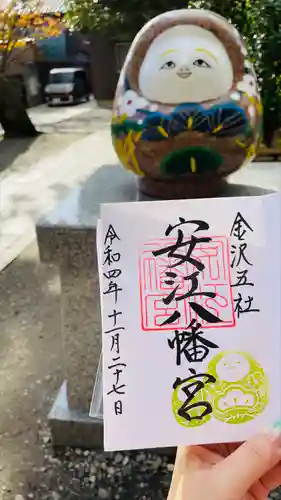 金沢五社
安江八幡宮
令和四年十一月二十七日